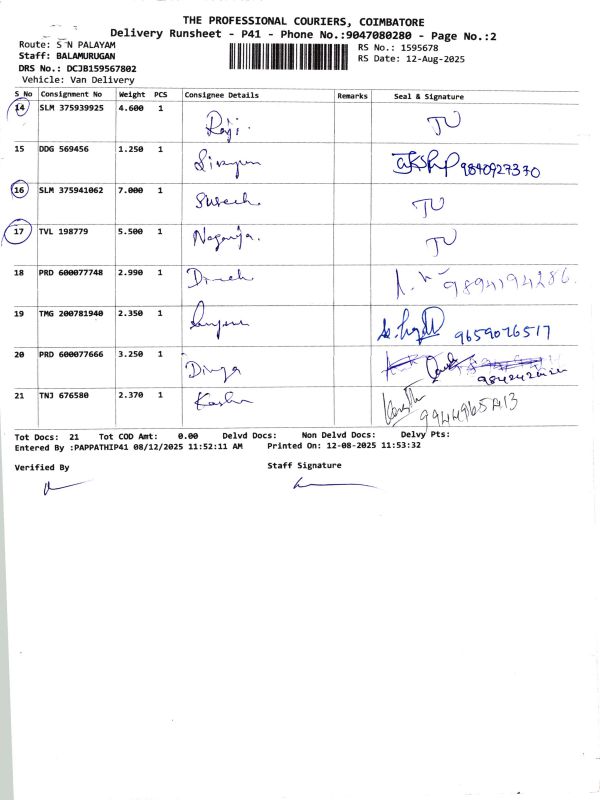 THE PROFESSIONAL COURIERS, COIMBATORE
Delivery Runsheet - P41 - Phone No.:9047080280 - Page No.:2
Route: S N PALAYAM
Staff: BALAMURUGAN
DRS No.: DCJB159567802
Vehicle: Van Delivery
RS No.: 1595678
RS Date: 12-Aug-2025
S_No Consignment No Weight PCS Consignee Details Remarks Seal & Signature
14 SLM 375939925 4.600 1 Raji. TU
15 DDG 569456 1.250 1 9840927370
16 SLM 375941062 7.000 1 Suresh. TU
17 TVL 198779 5.500 1 TU
18 PRD 600077748 2.990 1 9894194286.
19 TMG 200781940 2.350 1 9659076517
20 PRD 600077666 3.250 1 Divya
21 TNJ 676580 2.370 1
Tot Docs: 21 Tot COD Amt: 0.00 Delvd Docs: Non Delvd Docs: Delvy Pts:
Entered By :PAPPATHIP41 08/12/2025 11:52:11 AM Printed On: 12-08-2025 11:53:32
Verified By Staff Signature